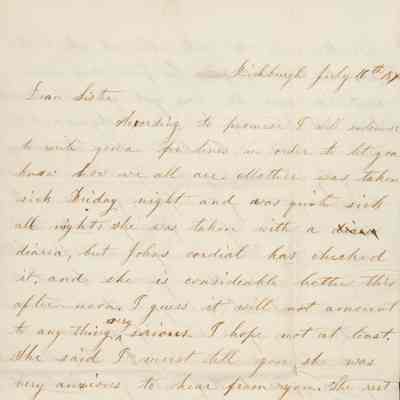 July 10th 18
Dear Sister
According to promise I will
to write you a few lines in order to let you
know how we all are. Mother was taken
sick Friday night and was quite sick
all night she was taken with a
diaria, but Johns cordial has checked
it, and she is considerable better this
afternoon. I guess it will not amount
to any thing very serious. I hope not at least.
She said I must tell you she was
very anxious to hear from you. She